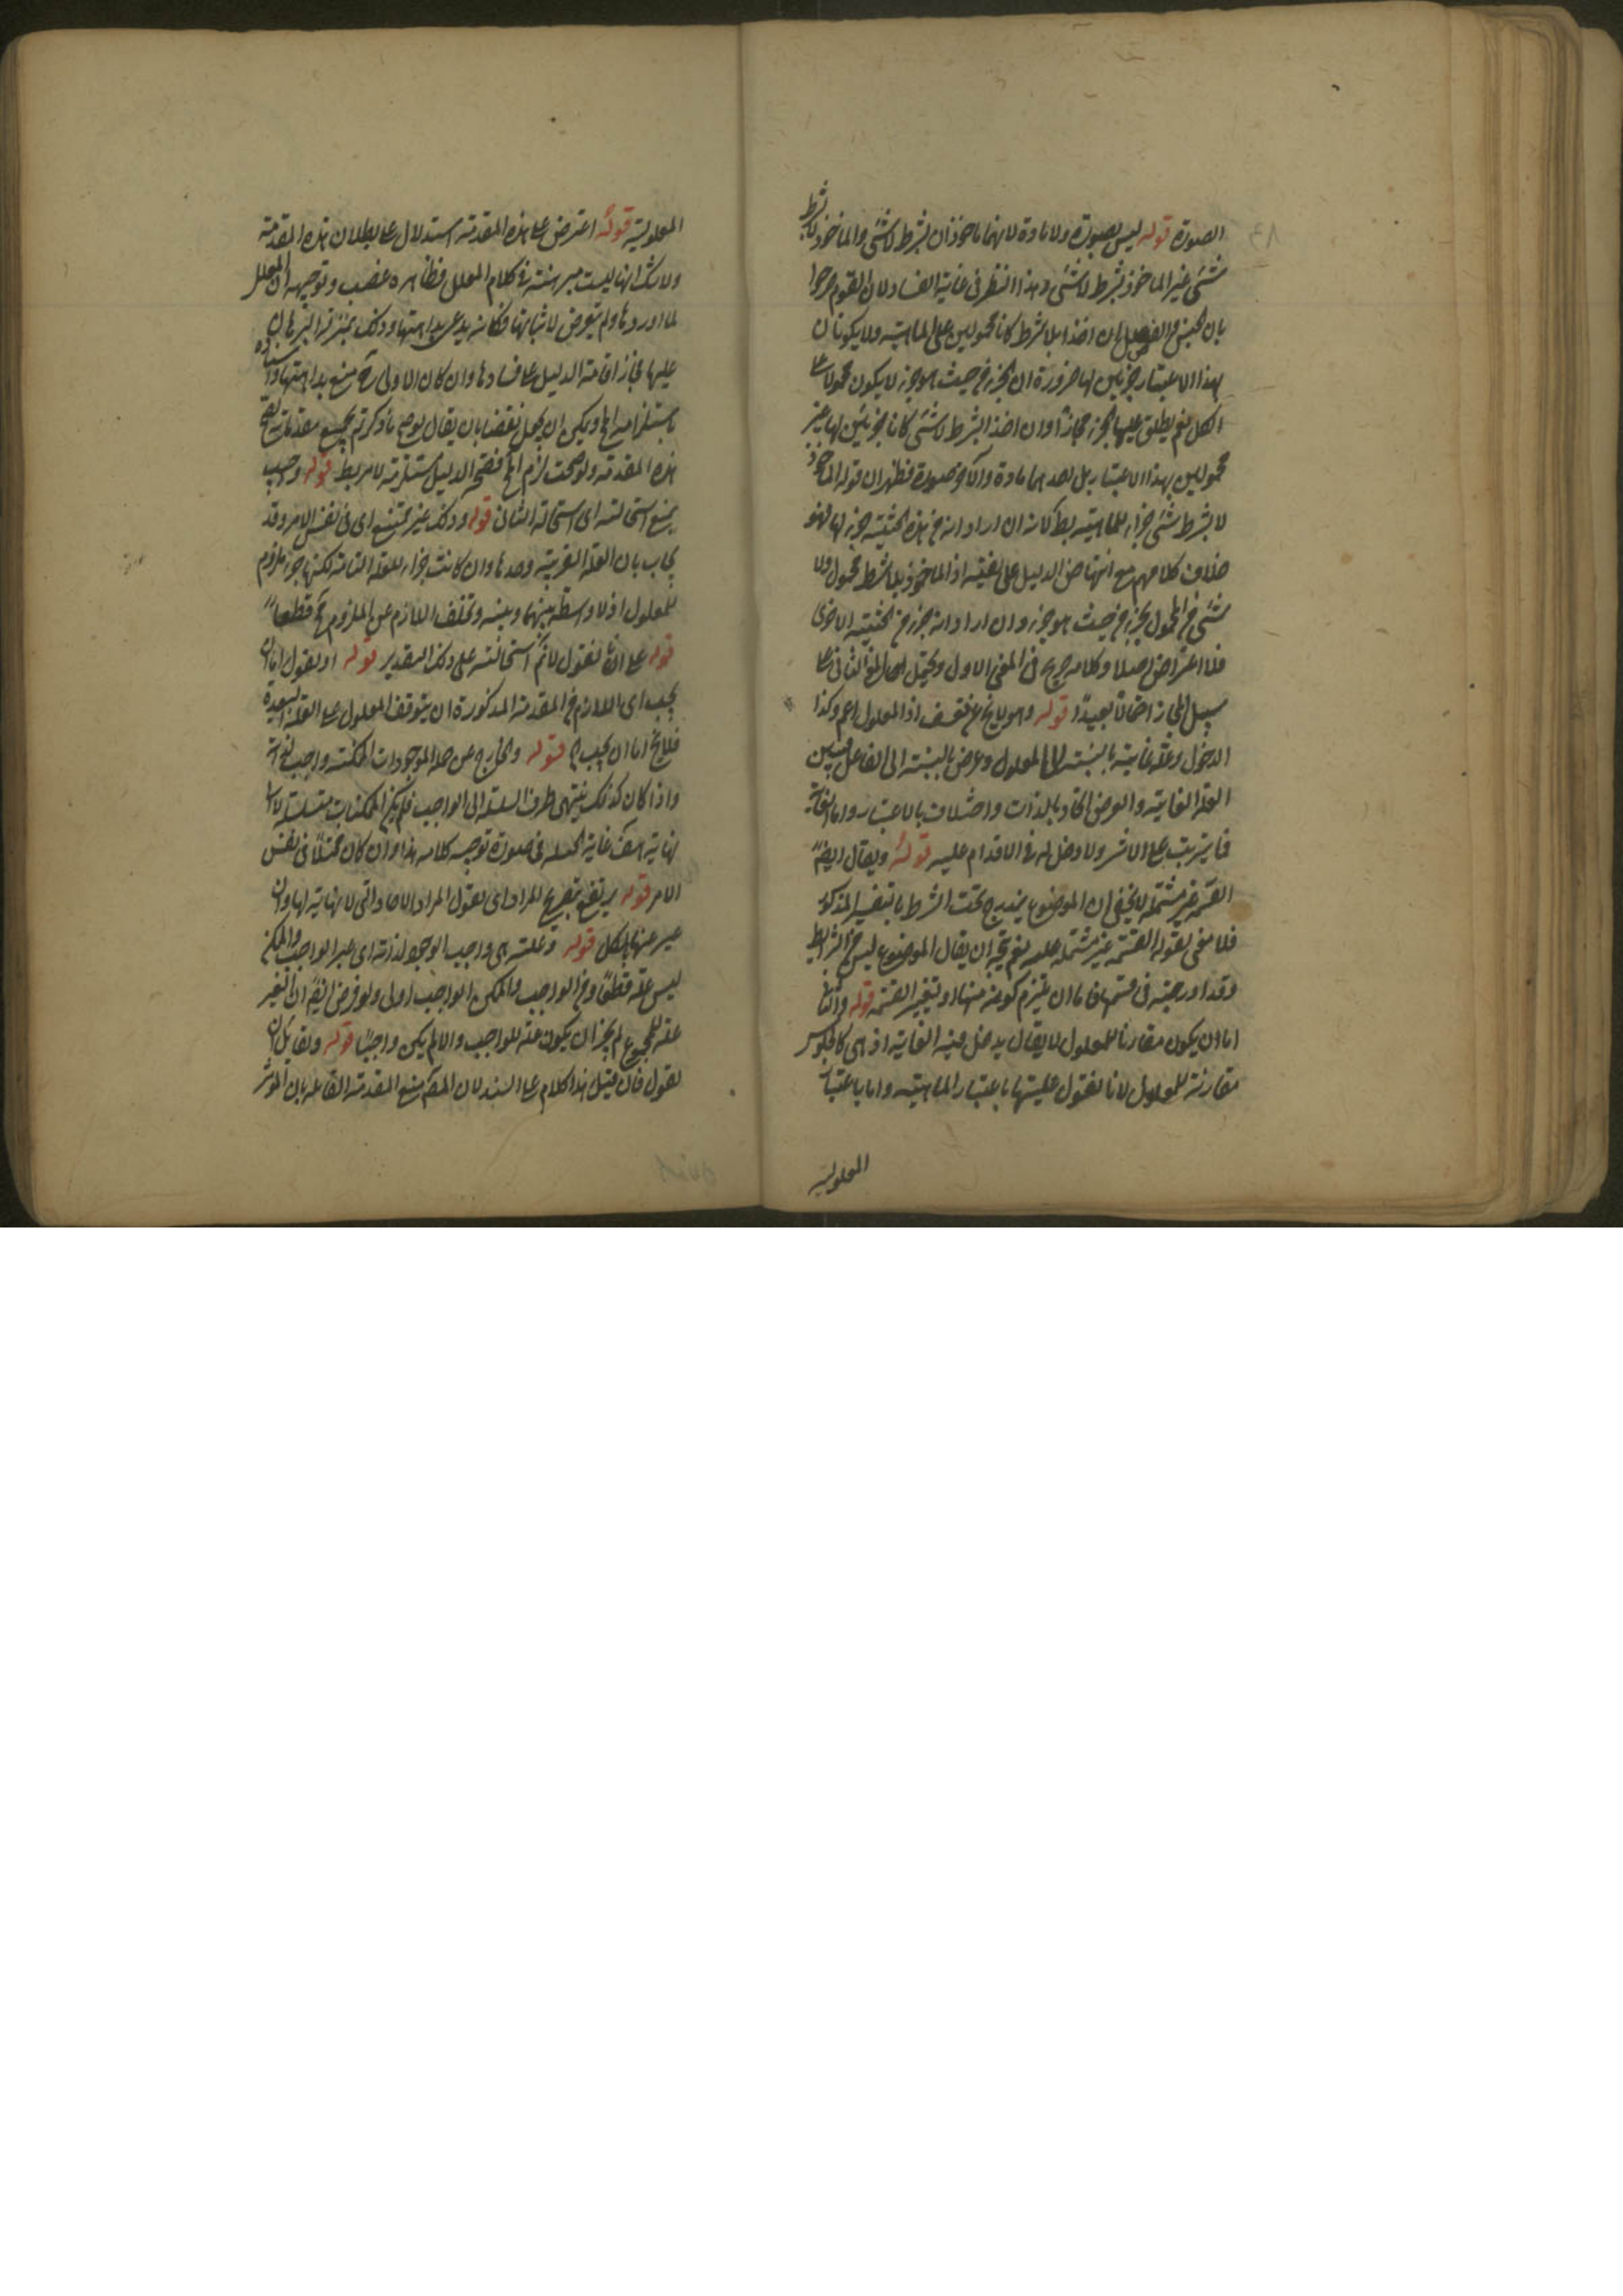 الصورة قوله ليس بصورة ولا مادة لانهما ماخوذان بشرط لا شئ والماخوذ لا بشرط
شئ غير الماخوذ بشرط لا شئ وهذا النظر فى غاية الفساد لان القوم صرحوا
بان الجنس والفصل ان اخذا بلا شرط كانا محمولين على الماهية ولا يكونان
بهذا الاعتبار جزئين لها ضرورة ان الجزء من حيث هو جزء لا يكون محمولا على
الكل نعم يطلق عليهما الجزء مجازا وان اخذا بشرط لا شئ كانا جزئين لها غير
محمولين بهذا الاعتبار بل احدهما مادة والآخر صورة فظهر ان قوله الماخوذ
لا بشرط شئ جزء للماهية بط لانه ان اراد انه من هذه الحيثية جزء لها فهو
خلاف كلامهم مع انتهاض الدليل على نفيه اذ الماخوذ بلا شرط محمول ولا
شئ من المحمول بجزء من حيث هو جزء وان اراد انه جزء من الحيثية الاخرى
فلا اعتراض اصلا وكلامه صريح فى المعنى الاول ويحتمل المعنى الثانى على
سبيل المجاز احتمالا بعيدا قوله وهو لا يخ عن تعسف اذ المعلول اعم وكذا
الدخول وعلة غائية بالنسبة الى المعلول وغرض بالنسبة الى الفاعل فبين
العلة الغائية والغرض اتحاد بالذات واختلاف بالاعتبار واما الغاية
فما يترتب على الاثر ولا دخل له فى الاقدام عليه قوله ويقال ايضا
القسمة غير مشتملة لا يخفى ان الموضوع يندرج تحت الشرط بالتفسير المذكور
فلا معنى لقوله القسمة غير مشتملة عليه نعم يتجه ان يقال الموضوع ليس من الشرائط
وقد ادرجته فى قسمها فاما ان يلتزم كونه منها او تغير القسمة قوله والثانى
اما ان يكون مقارنا للمعلول لا يقال يدخل فيه الغاية اذ هى كالجلوس
مقارنة للمعلول لانا نقول عليتها باعتبار الماهية واما باعتبار
المعلولية
المعلولية قوله اعترض على هذه المقدمة استدلال على بطلان هذه المقدمة
ولا شك انها ليست مبرهنة فى كلام المعلل فظاهره غصب وتوجيهه ان المعلل
لما اوردها ولم يتعرض لاثباتها فكانه يدعى بداهتها وذلك بمنزلة البرهان
عليها فجاز اقامة الدليل على فسادها وان كان الاولى منع بداهتها واسناده
باستلزامه المح ويمكن ان يجعل نقضا بان يقال لو صح ما ذكرتم بجميع مقدماته لصح
هذه المقدمة ولو صحت لزم المح فصحة الدليل مستلزمة لامر بط قوله وجب
يمنع استحالته اى استحالة الثانى قوله وذلك غير ممتنع اى فى نفس الامر وقد
يجاب بان العلة القريبة وحدها وان كانت جزء للعلة التامة لكنها جزء ملزوم
للمعلول اذ لا واسطة بينها وبينه وتخلف اللازم عن الملزوم مح قطعا
قوله على انا نقول لا نم استحالته على ذلك التقدير قوله او نقول اما ان
يجب اى اللازم من المقدمة المذكورة ان يتوقف المعلول على العلة البعيدة
فلا يخ اما ان يجب قوله والخارج عن جملة الموجودات الممكنة واجب لذاته
واذا كان كذلك ينتهى طرف السلسلة الى الواجب فلم يكن الممكنات متسلسلة لا الى
نهاية هف غاية الجملة فى صورة توجيه كلامه هذا وان كان محتملا فى نفس
الامر قوله يرتفع بتصريح المراد اى نقول المراد الآحاد التى لا نهاية لها وان
عبر عنها بالكل قوله وعلته هى واجب الوجود لذاته اى غير الواجب والممكن
ليس علة قطعا ومن الواجب والممكن الواجب اولى ولو فرض ايضا ان الغير
علة للمجموع لم يجز ان يكون علة للواجب والا لم يكن واجبا قوله ولقائل ان
يقول فان قيل هذا كلام على السند لان المقام منع المقدمة القائلة بان المؤثر